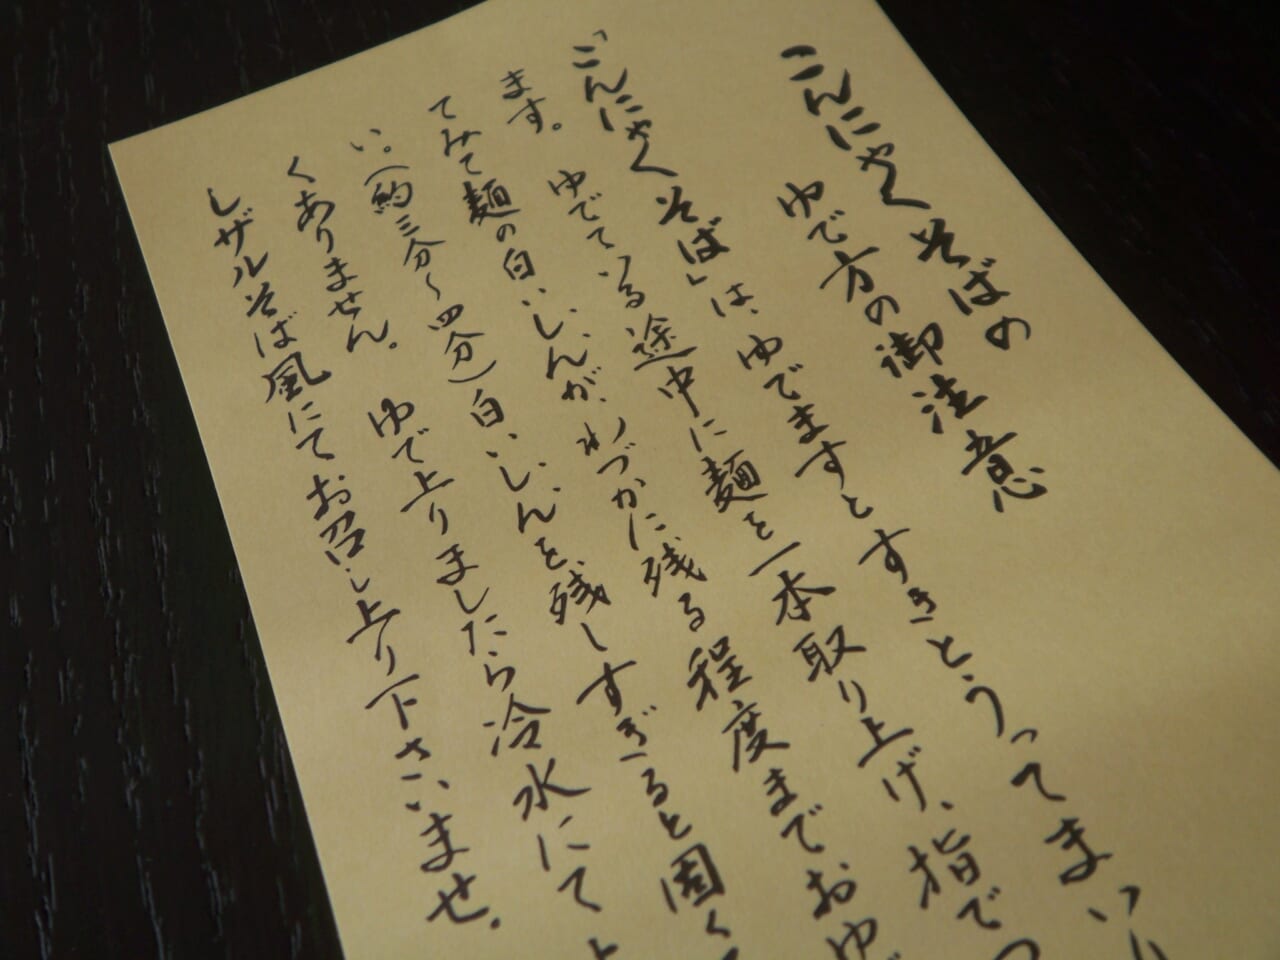 こんにゃくそばの
ゆで方の御注意
「こんにゃくそば」は、ゆでますとすきとうってまいり
ます。ゆでている途中に麺を一本取り上げ、指でつ
てみて麺の白いしんがわづかに残る程度までおゆで
い。(約三分〜四分)白いしんを残しすぎると固く
くありません。ゆで上りましたら冷水にて
しザルそば風にてお召し上り下さいませ。